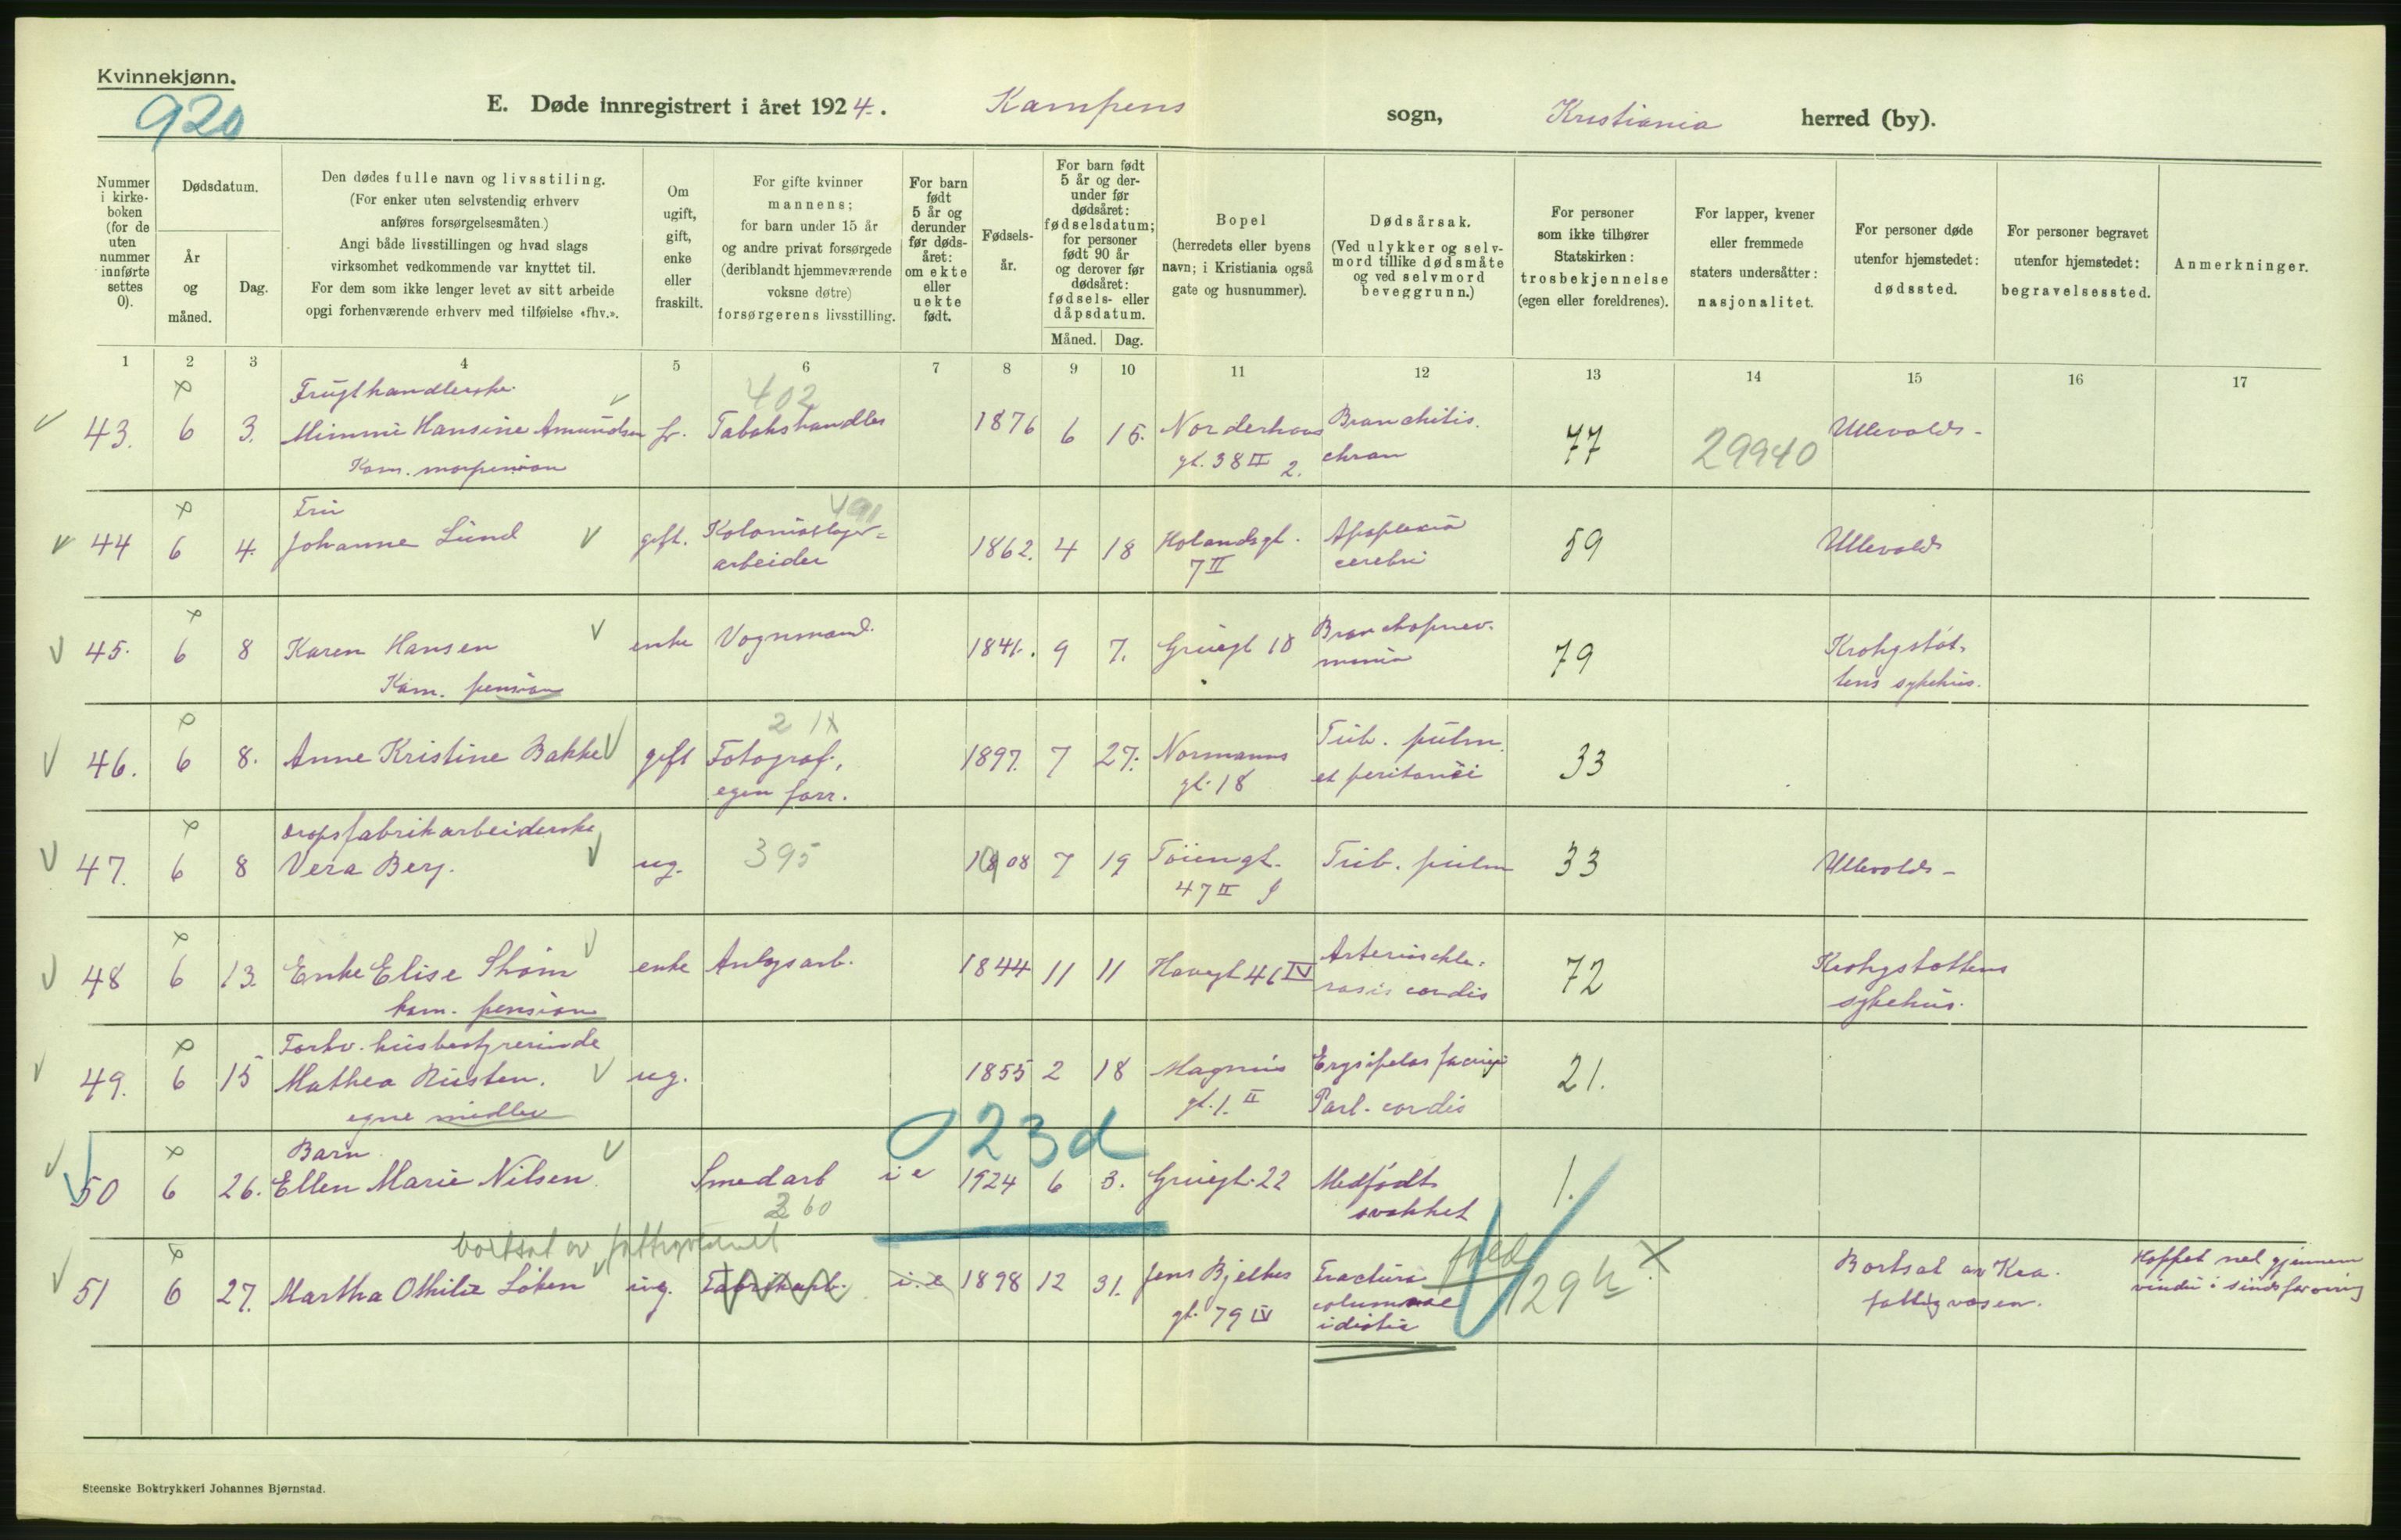 Kvinnekjønn.
920
E. Døde innregistrert i året 1924. Kampens sogn, Kristiania herred (by).
Nummer i kirkeboken (for de uten nummer innførte settes 0).
Dødsdatum.
År og måned.
Dag.
Den dødes fulle navn og livsstiling.
(For enker uten selvstendig erhverv
anføres forsørgelsesmåten.)
Angi både livsstillingen og hvad slags
virksomhet vedkommende var knyttet til.
For dem som ikke lenger levet av sitt arbeide
opgi forhenværende erhverv med tilføielse «fhv.».
Om ugift, gift, enke eller fraskilt.
For gifte kvinner
mannens;
for barn under 15 år
og andre privat forsørgede
(deriblandt hjemmeværende
voksne døtre)
forsørgerens livsstilling.
For barn født 5 år og derunder før dødsåret: om ekte eller uekte født.
Fødselsår.
For barn født 5 år og derunder før dødsåret: fødselsdatum; for personer født 90 år og derover før dødsåret: fødsels- eller dåpsdatum.
Måned. Dag.
Bopel
(herredets eller byens
navn; i Kristiania også
gate og husnummer).
Dødsårsak.
(Ved ulykker og selvmord tillike dødsmåte
og ved selvmord
beveggrunn.)
For personer
som ikke tilhører
Statskirken:
trosbekjennelse
(egen eller foreldrenes).
For lapper, kvener
eller fremmede
staters undersåtter:
nasjonalitet.
For personer døde
utenfor hjemstedet:
dødssted.
For personer begravet
utenfor hjemstedet:
begravelsessted.
Anmerkninger.
1 2 3 4 5 6 7 8 9 10 11 12 13 14 15 16 17
Frugthandlerske 402
43. 6 3. Mimmi Hansine Amundsen fr. Tabakshandler 1876 6 15. Norderhovs Bronchitis 77 29940 Ullevolds-
Kom. morpension gt. 38 II 2. chron
Fru
44 6 4. Johanne Lund gift. Koloniallager- 1862. 4 18 Holandsgt. Apoplexia 59 Ullevolds
arbeider 7 II cerebri
45. 6 8 Karen Hansen enke Vognmand. 1841. 9 7. Gruegt 18 Bronchopnev- 79 Krohgstøt-
Kom. pension monia tens sykehus.
46. 6 8. Anne Kristine Bakke gift Fotograf, 1897. 7 27. Normanns Tub. pulm. 33
egen forr. gt. 18 et peritonei
Dropsfabrikarbeiderske
47. 6 8 Vera Berg. ug. 395 1908 7 19 Töiengt. Tub. pulm 33 Ullevolds-
47 II
48 6 13. Enke Elise Strøm enke Anlegsarb. 1844 11 11 Havegt 46 IV Arterioskle- 72 Krohgstøttens
kom. pension rosis cordis sykehus.
Forhv. husbestyrerinde
49. 6 15 Mathea Rusten. ug. 1855 2 18 Magnus Erysipelas faciei 21.
egne midler gt. 1. II Parl. cordis
0 23 d
Barn
50 6 26. Ellen Marie Nilsen Smedarb i e 1924 6 3. Gruegt. 22 Medfødt 1.
360 svakhet
bortsat av fattigvesenet
51 6 27. Martha Othilie Löken ug. Fabrikarb. i. e 1898 12 31. Jens Bjelkes Fractura 129 Bortsat av Kra. Hoppet ned gjennem
gt. 79 IV columnae fattigvæsen. vindu i sindsforvirring
idiotia
Steenske Boktrykkeri Johannes Bjørnstad.